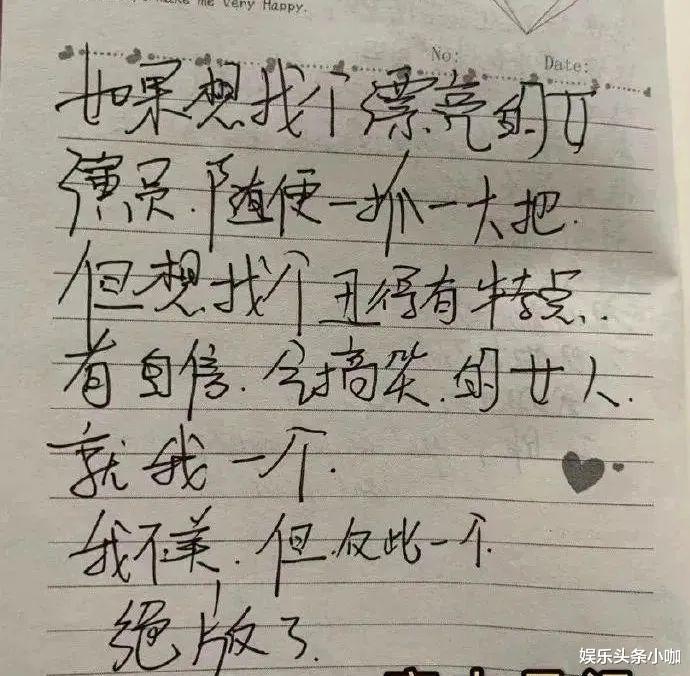 make me very Happy.
No:
Date:
如果想找个漂亮的女
演员.随便一抓一大把.
但想找个丑得有特点..
有自信.会搞笑.的女人.
就我一个.
我不美.但仅此一个.
绝版了.
娱乐头条小咖